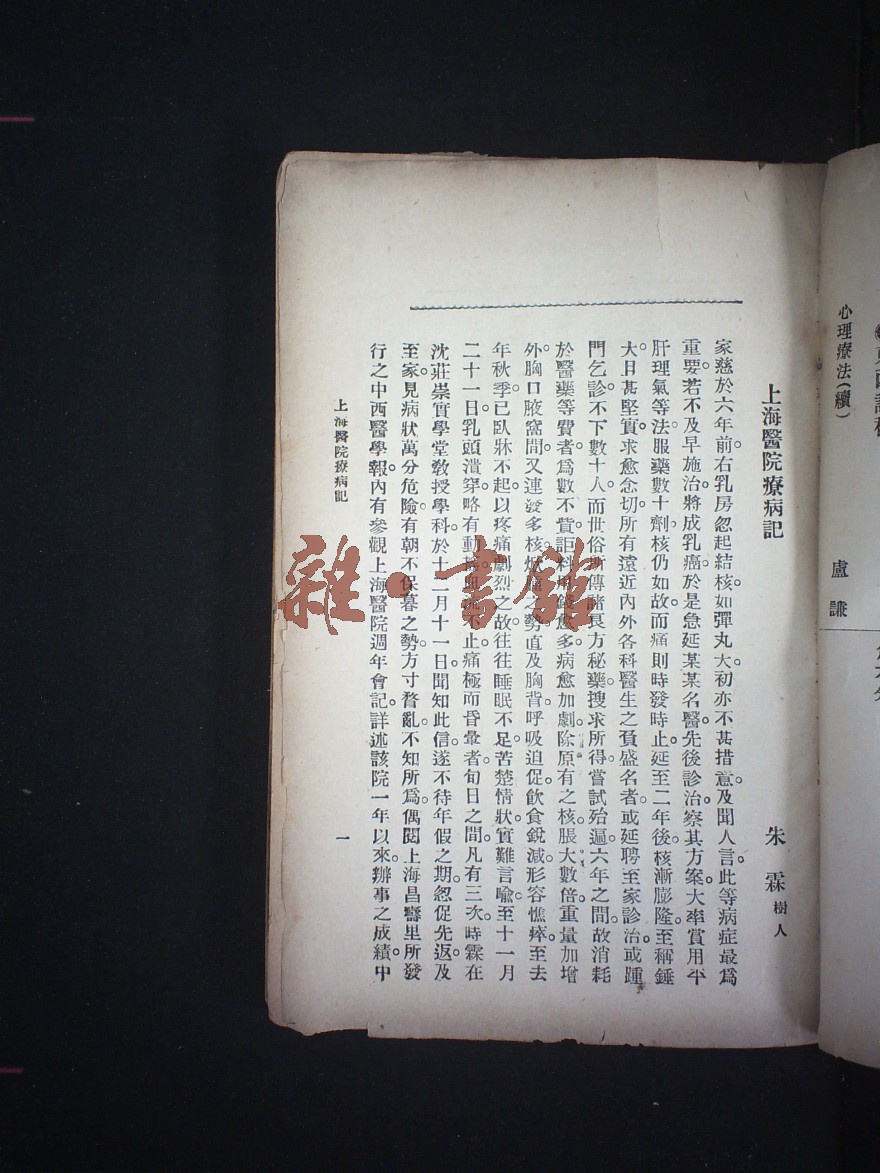 心理療法(續)
盧謙
上海醫院療病記
朱霖樹人
家慈於六年前。右乳房忽起結核。如彈丸大。初亦不甚措意。及聞人言。此等病症最爲
重要。若不及早施治。將成乳癌。於是急延某某名醫。先後診治。察其方案。大率賞用平
肝理氣等法。服藥數十劑。核仍如故。而痛則時發時止。延至二年後。核漸膨隆。至稱錘
大。且甚堅實。求愈念切。所有遠近內外各科醫生之負盛名者。或延聘至家診治。或踵
門乞診。不下數十人。而世俗所傳諸良方秘藥。搜求所得。嘗試殆遍。六年之間。故消耗
於醫藥等費者。爲數不貲。詎料愈多。病愈加劇。除原有之核。脹大數倍。重量加增
外。胸口腋窩間。又連發多核。痛之勢。直及胸背。呼吸迫促。飲食銳減。形容憔瘁。至去
年秋季。已臥牀不起。以疼痛劇烈之故。往往睡眠不足。苦楚情狀。實難言喻。至十一月
二十一日。乳頭潰穿。略有動流不止。痛極而昏暈者。旬日之間。凡有三次。時霖在
沈莊崇實學堂教授學科。於十二月十一日。聞知此信。遂不待年假之期。怱促先返。及
至家。見病狀萬分危險。有朝不保暮之勢。方寸瞀亂。不知所爲。偶閱上海昌壽里所發
行之中西醫學報。內有參觀上海醫院週年會記。詳述該院一年以來。辦事之成績。中
上海醫院療病記
一
雜·書館